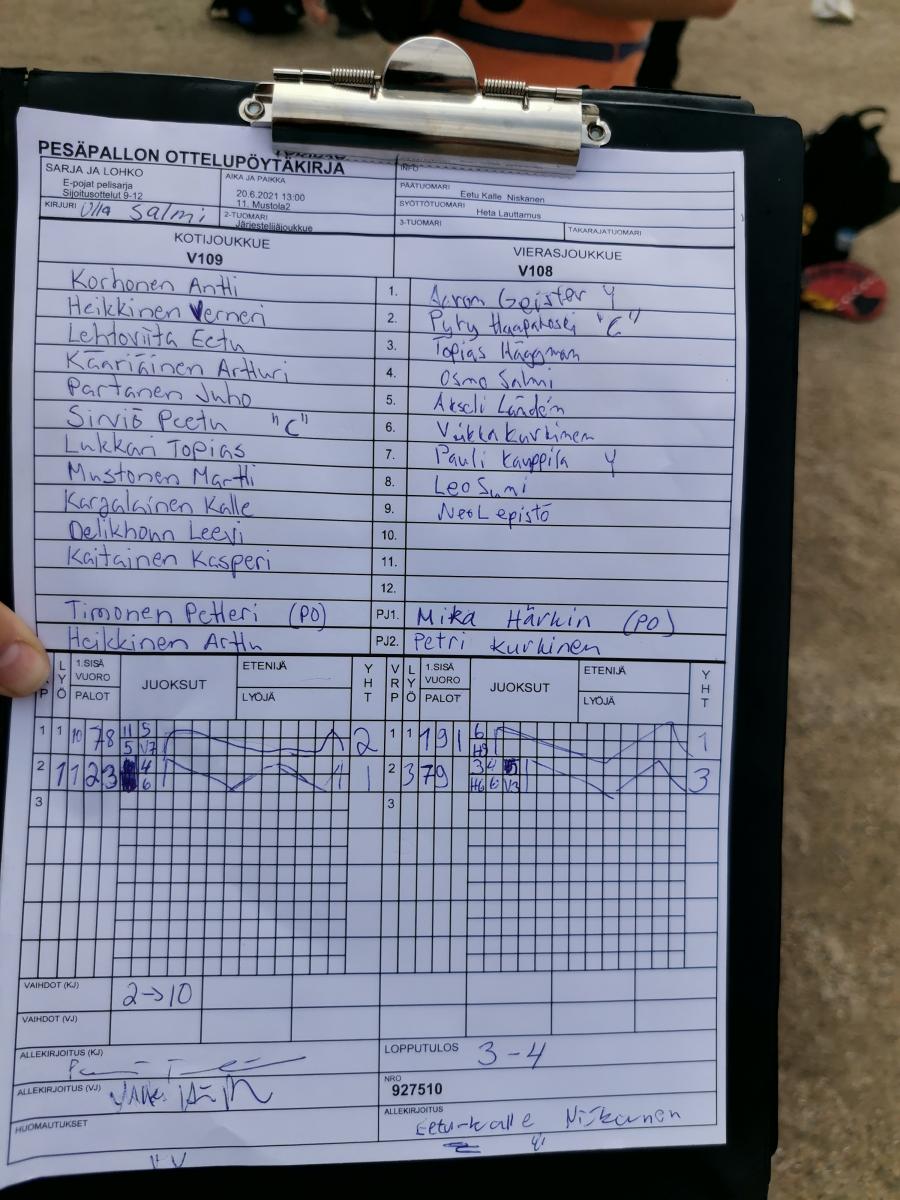 PESÄPALLON OTTELUPÖYTÄKIRJA
SARJA JA LOHKO
E-pojat pelisarja
Sijoitusottelut 9-12
KIRJURI Ulla Salmi
AIKA JA PAIKKA
20.6.2021 13:00
11. Mustola2
2-TUOMARI
Järjestelijäjoukkue
INFO
PÄÄTUOMARI Eetu Kalle Niskanen
SYÖTTÖTUOMARI Heta Lauttamus
3-TUOMARI
TAKARAJATUOMARI
KOTIJOUKKUE
V109
VIERASJOUKKUE
V108
Korhonen Antti 1. Aaron Geister Y
Heikkinen Verneri 2. Pyry Haapakoski "C"
Lehtoviita Eetu 3. Topias Häggman
Kääriäinen Artturi 4. Osmo Salmi
Partanen Juho 5. Akseli Lindén
Sirviö Peetu "C" 6. Veikka Kurkinen
Lukkari Topias 7. Pauli Kauppila Y
Mustonen Martti 8. Leo Sumi
Karjalainen Kalle 9. Neo Lepistö
Delikhoun Leevi 10.
Kaitainen Kasperi 11.
12.
Timonen Petteri (PO) PJ1. Mika Härkin (PO)
Heikkinen Arttu PJ2. Petri Kurkinen
P LYÖ 1.SISÄ VUORO PALOT JUOKSUT ETENIJÄ LYÖJÄ YHT
VRP LYÖ 1.SISÄ VUORO PALOT JUOKSUT ETENIJÄ LYÖJÄ YHT
1 1 10 7 8 11 5 2 1 1 1 9 1 6 1
5 V7 H9
2 1 11 2 3 4 1 2 3 7 9 3 4 5 3
6 H6 6 V3
3 3
VAIHDOT (KJ) 2→10
VAIHDOT (VJ)
ALLEKIRJOITUS (KJ)
ALLEKIRJOITUS (VJ)
HUOMAUTUKSET
LOPPUTULOS 3-4
NRO
927510
ALLEKIRJOITUS
Eetu-Kalle Niskanen